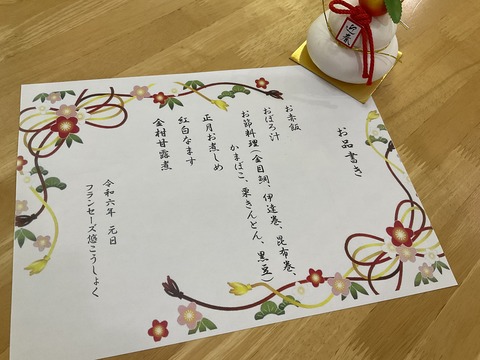 お品書き
お赤飯
おぼろ汁
お節料理(金目鯛、伊達巻、昆布巻、
かまぼこ、栗きんとん、黒豆)
正月お煮しめ
紅白なます
金柑甘露煮
令和六年 元日
フランセーズ悠こうしょく
迎春